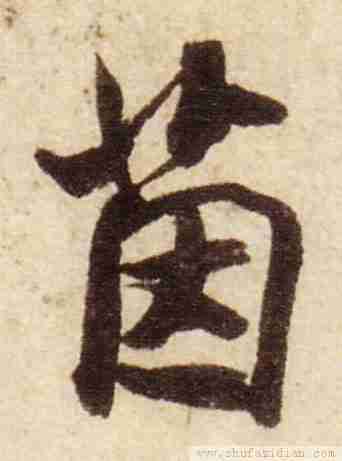 茵
www.shufazidian.com